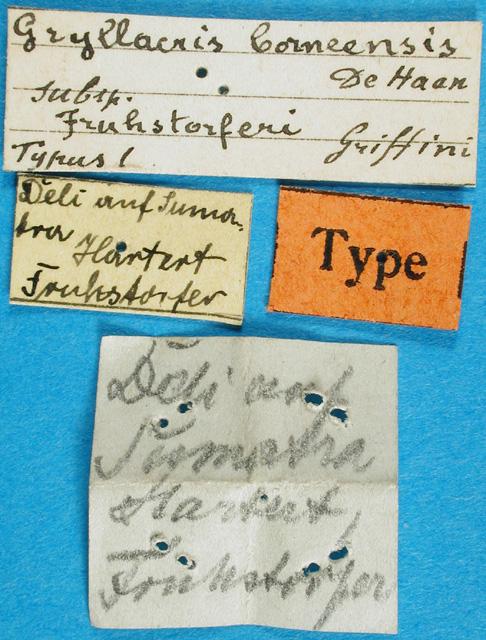 Gryllacris borneensis
De Haan
subsp.
Fruhstorferi Griffini
Typus 1
Deli auf Suma-
tra
Hartert
Fruhstorfer
Type
Deli auf
Sumatra
Hartert,
Fruhstorfer